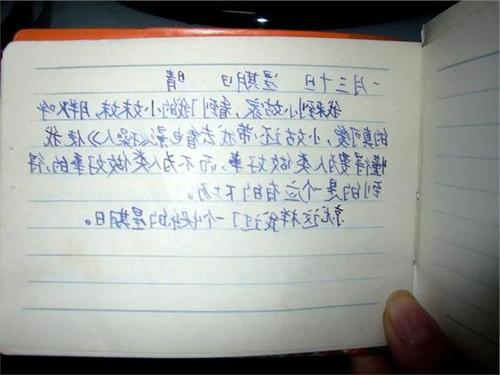 一月三十日 星期日 晴
我来到小姑家,看到了我的小妹妹,胖
的真可爱,小姑还带我去看电影《人》使我
懂得要为人类做好事,而不为人类做好事的,得
到的是一个应有的下场。
就这样我过了一个快乐的星期日。